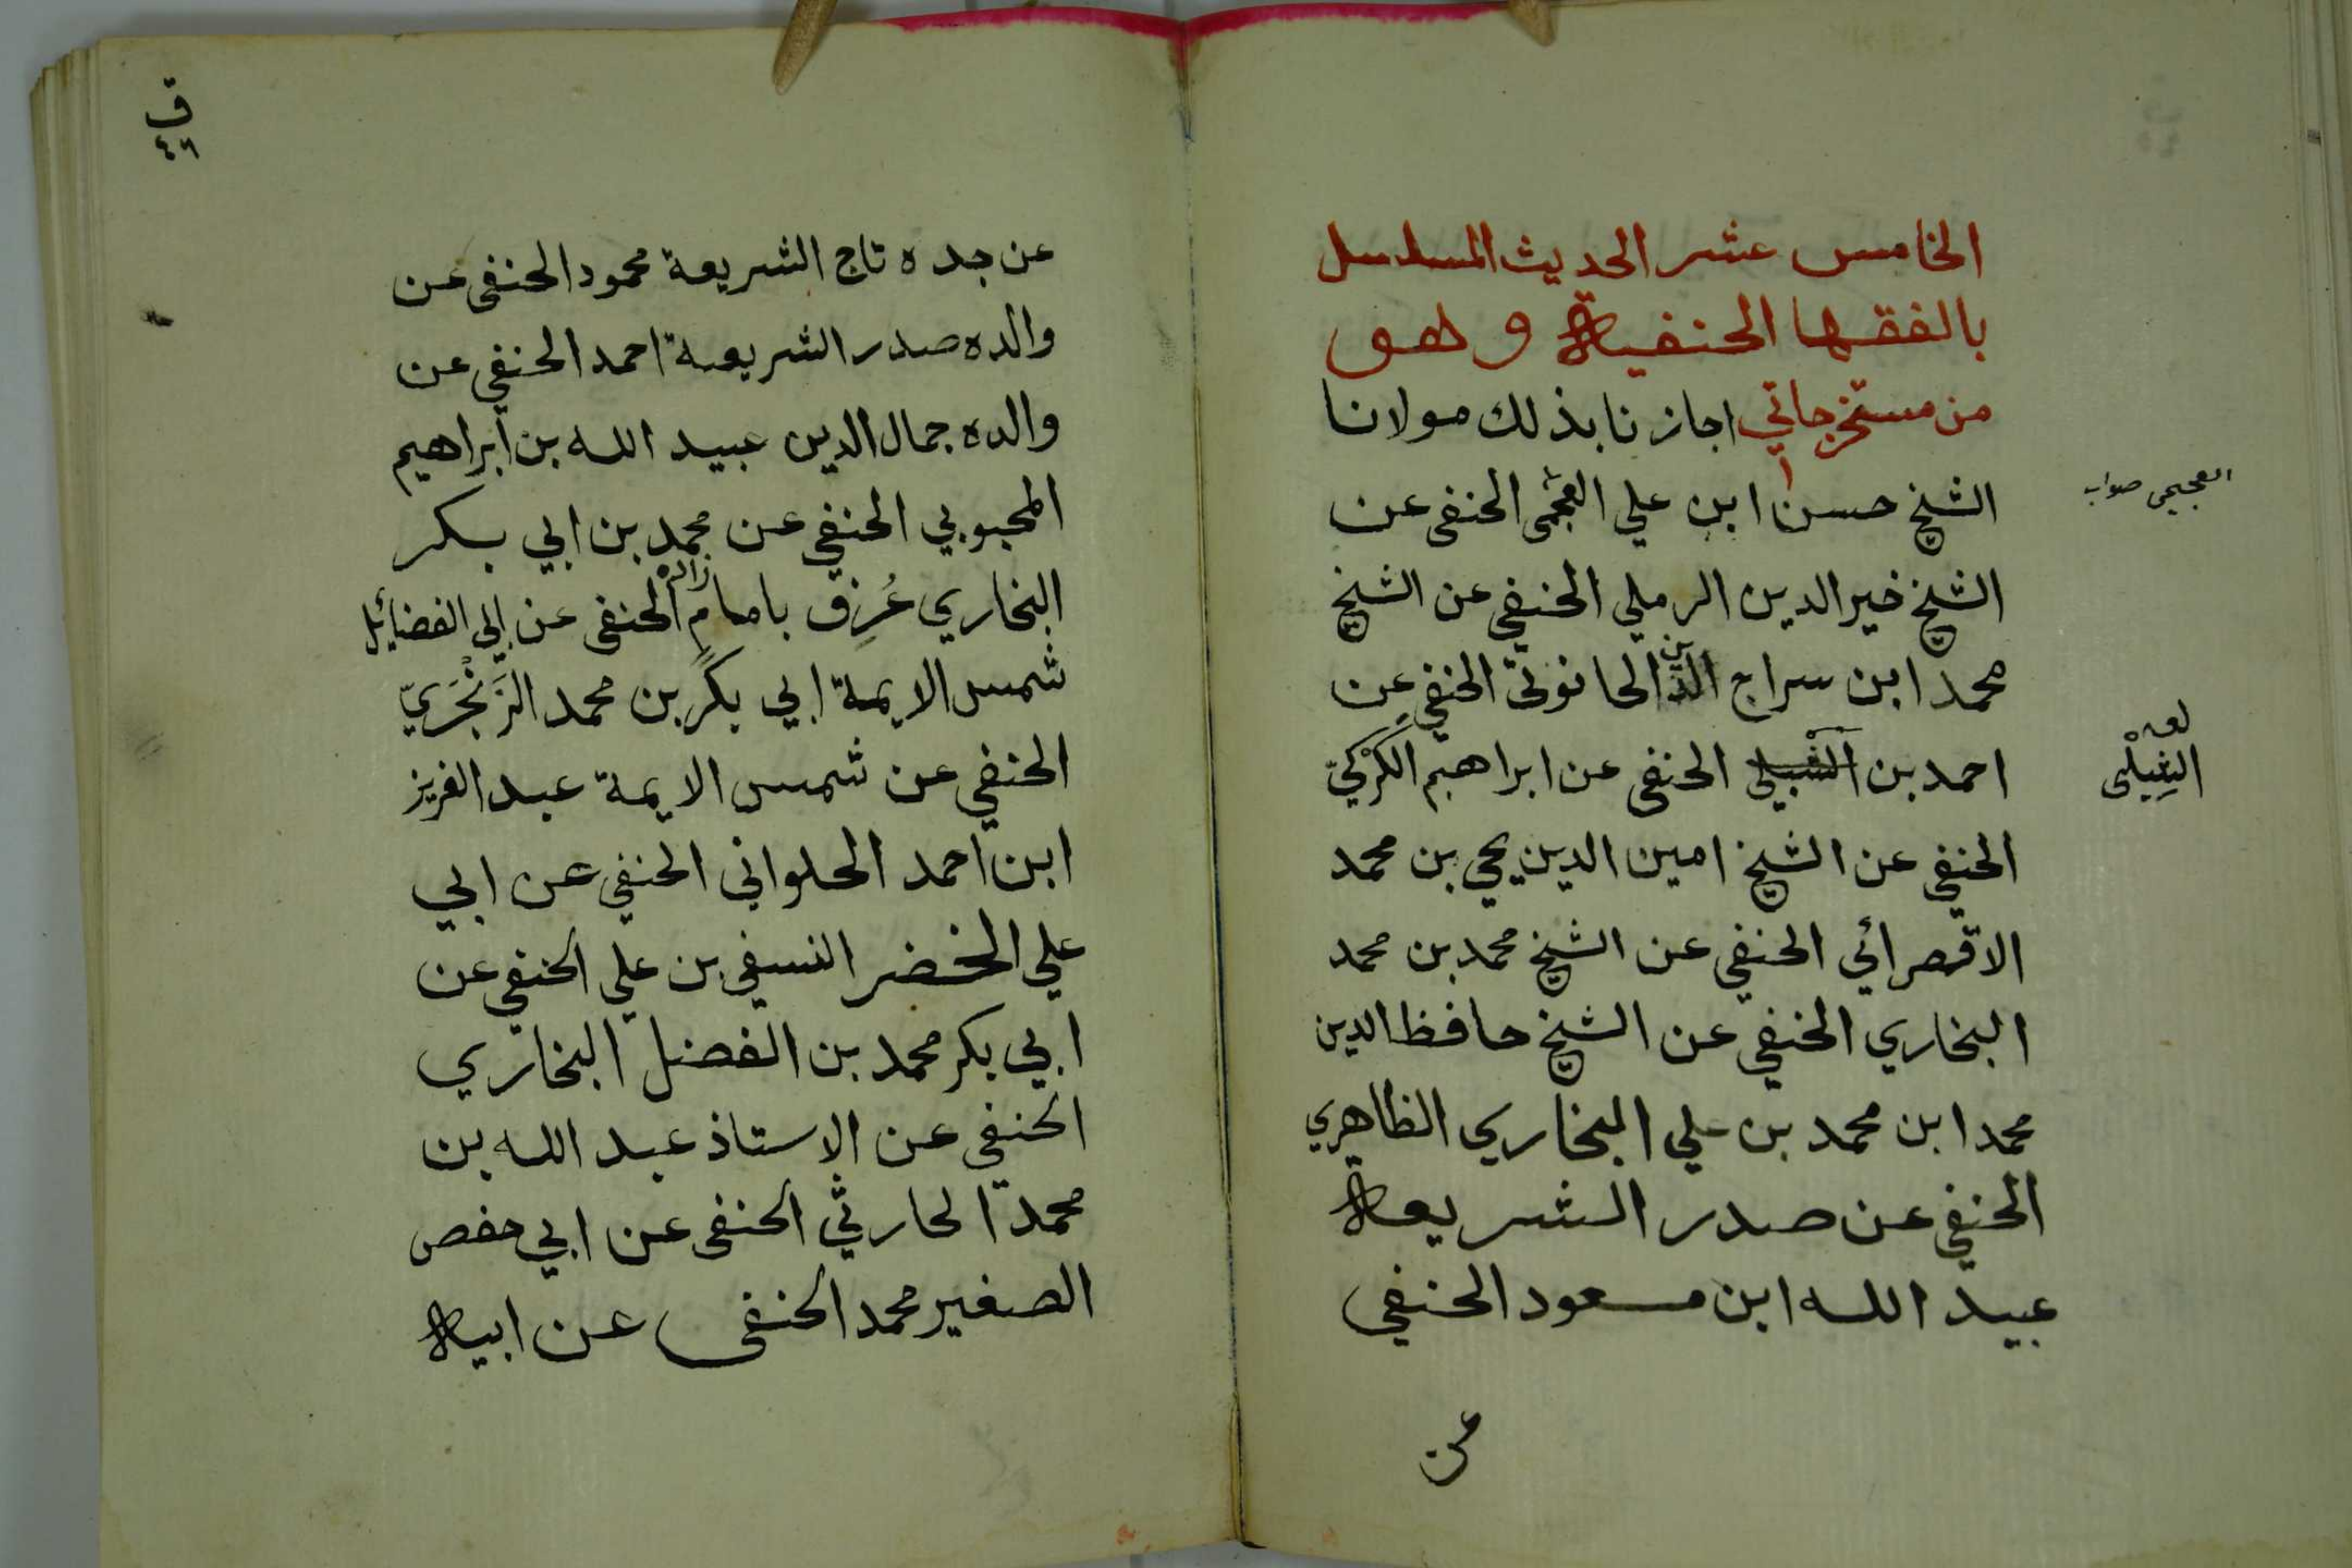 الخامس عشر الحديث المسلسل
بالفقها الحنفية وهو
من مستخرجاتي اجازنا بذلك مولانا
الشيخ حسن ابن علي العجمى الحنفى عن
العجيمى صواب
الشيخ خير الدين الرملي الحنفي عن الشيخ
محمد ابن سراج الدين الحانوتى الحنفي عن
احمد بن الشبلي الحنفى عن ابراهيم الكَرْكيّ
لعله
الشِبْلى
الحنفي عن الشيخ امين الدين يحي بن محمد
الاقصرائي الحنفي عن الشيخ محمد بن محمد
البخاري الحنفي عن الشيخ حافظ الدين
محمد ابن محمد بن علي البخاري الظاهري
الحنفي عن صدر الشريعة
عبيد الله ابن مسعود الحنفي
عن
ق
٤٦
عن جده تاج الشريعة محمود الحنفى عن
والده صدر الشريعة احمد الحنفي عن
والده جمال الدين عبيد الله بن ابراهيم
المحبوبي الحنفي عن محمد بن ابي بكر
البخاري عُرِف بامام زاده الحنفى عن ابي الفضائيل
شمس الايمة ابي بكر بن محمد الزَرَنْجَريّ
الحنفي عن شمس الايمة عبد العزيز
ابن احمد الحلواني الحنفي عن ابي
علي الخضر النسفي بن علي الحنفي عن
ابي بكر محمد بن الفضل البخاري
الحنفي عن الاستاذ عبد الله بن
محمد الحارثي الحنفى عن ابي حفص
الصغير محمد الحنفى عن ابيه